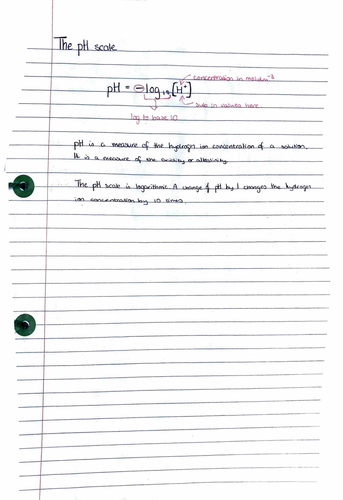 The pH scale
concentration in moldm⁻³
pH = -log₁₀[H⁺]
sub in values here
log to base 10
pH is a measure of the hydrogen ion concentration of a solution.
It is a measure of the acidity or alkalinity.
The pH scale is logarithmic. A change of pH by 1 changes the hydrogen
ion concentration by 10 times.